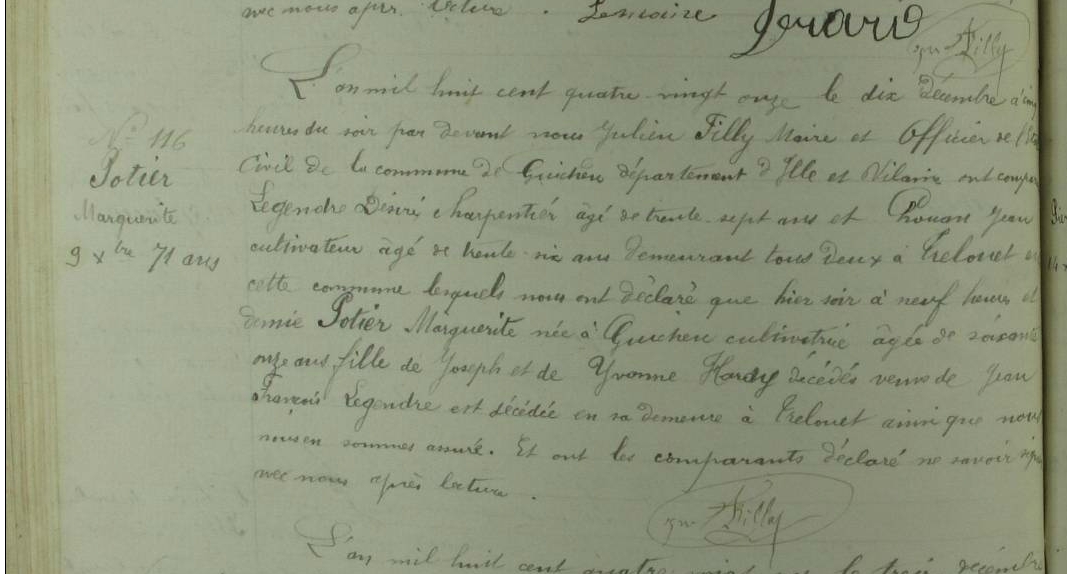 avec nous après lecture. Lemoine Jouario
Jn Filly
L'an mil huit cent quatre vingt onze le dix décembre à cinq
heures du soir par devant nous Julien Filly Maire et Officier de l'Etat
Civil de la commune de Guichen département d'Ille et Vilaine ont comparu
Legendre Désiré charpentier âgé de trente-sept ans et Chouan Jean
cultivateur âgé de trente-six ans demeurant tous deux à Trelouet en
cette commune lesquels nous ont déclaré que hier soir à neuf heures et
demie Potier Marguerite née à Guichen cultivatrice âgée de soixante
onze ans fille de Joseph et de Yvonne Hardy décédés veuve de Jean
François Legendre est décédée en sa demeure à Trelouet ainsi que nous
nous en sommes assuré. Et ont les comparants déclaré ne savoir signer
avec nous après lecture.
Jn Filly
L'an mil huit cent quatre vingt le trois décembre
No 116
Potier
Marguerite
9 xbre 71 ans